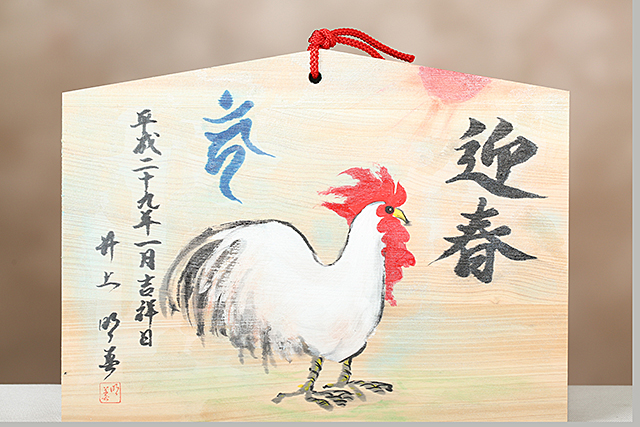 迎春
平成二十九年一月吉祥日
井上